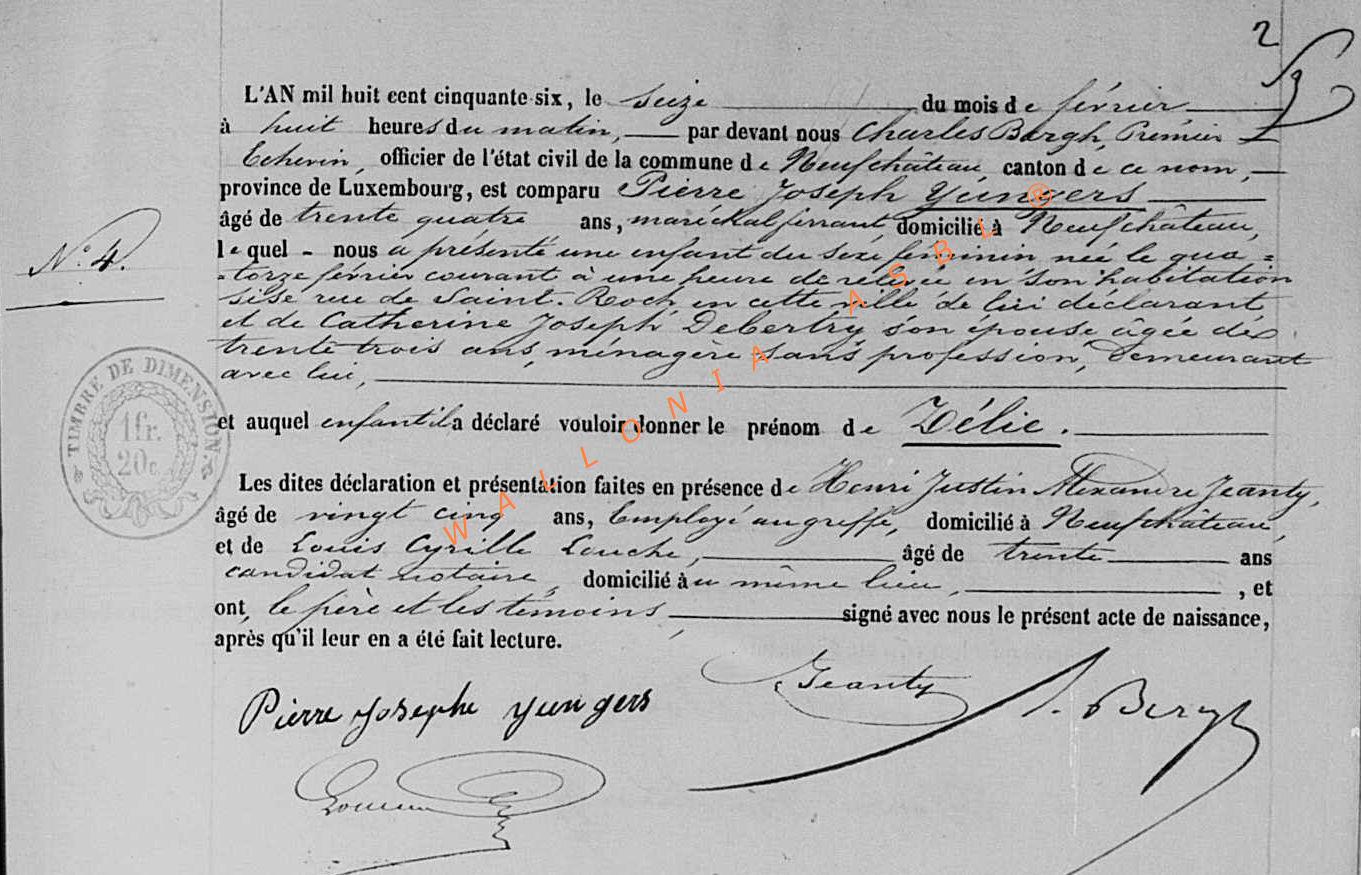 2
L'AN mil huit cent cinquante-six, le seize du mois de février
à huit heures du matin, par devant nous Charles Bergh, Premier
Echevin, officier de l'état civil de la commune de Neufchâteau, canton de ce nom,
province de Luxembourg, est comparu Pierre Joseph Yungers
N.° 4.
âgé de trente quatre ans, maréchal ferrant, domicilié à Neufchâteau,
lequel - nous a présenté une enfant du sexe féminin née le qua=
=torze février courant à une heure de relevée en son habitation
sise rue de Saint-Roch en cette ville de lui déclarant
et de Catherine Joseph Debertry son épouse âgée de
trente trois ans, ménagère sans profession, demeurant
avec lui,
TIMBRE DE DIMENSION.
1 fr.
20 c.
et auquel enfant il a déclaré vouloir donner le prénom de Délie.
Les dites déclaration et présentation faites en présence de Henri Justin Alexandre Jeanty,
âgé de vingt cinq ans, Employé au greffe, domicilié à Neufchâteau,
et de Louis Cyrille Louche, âgé de trente ans
candidat notaire, domicilié au même lieu, , et
ont, le père et les témoins, signé avec nous le présent acte de naissance,
après qu'il leur en a été fait lecture.
Pierre Josephe yungers
Jeanty
Bergh
WALLONIA ASBL ®